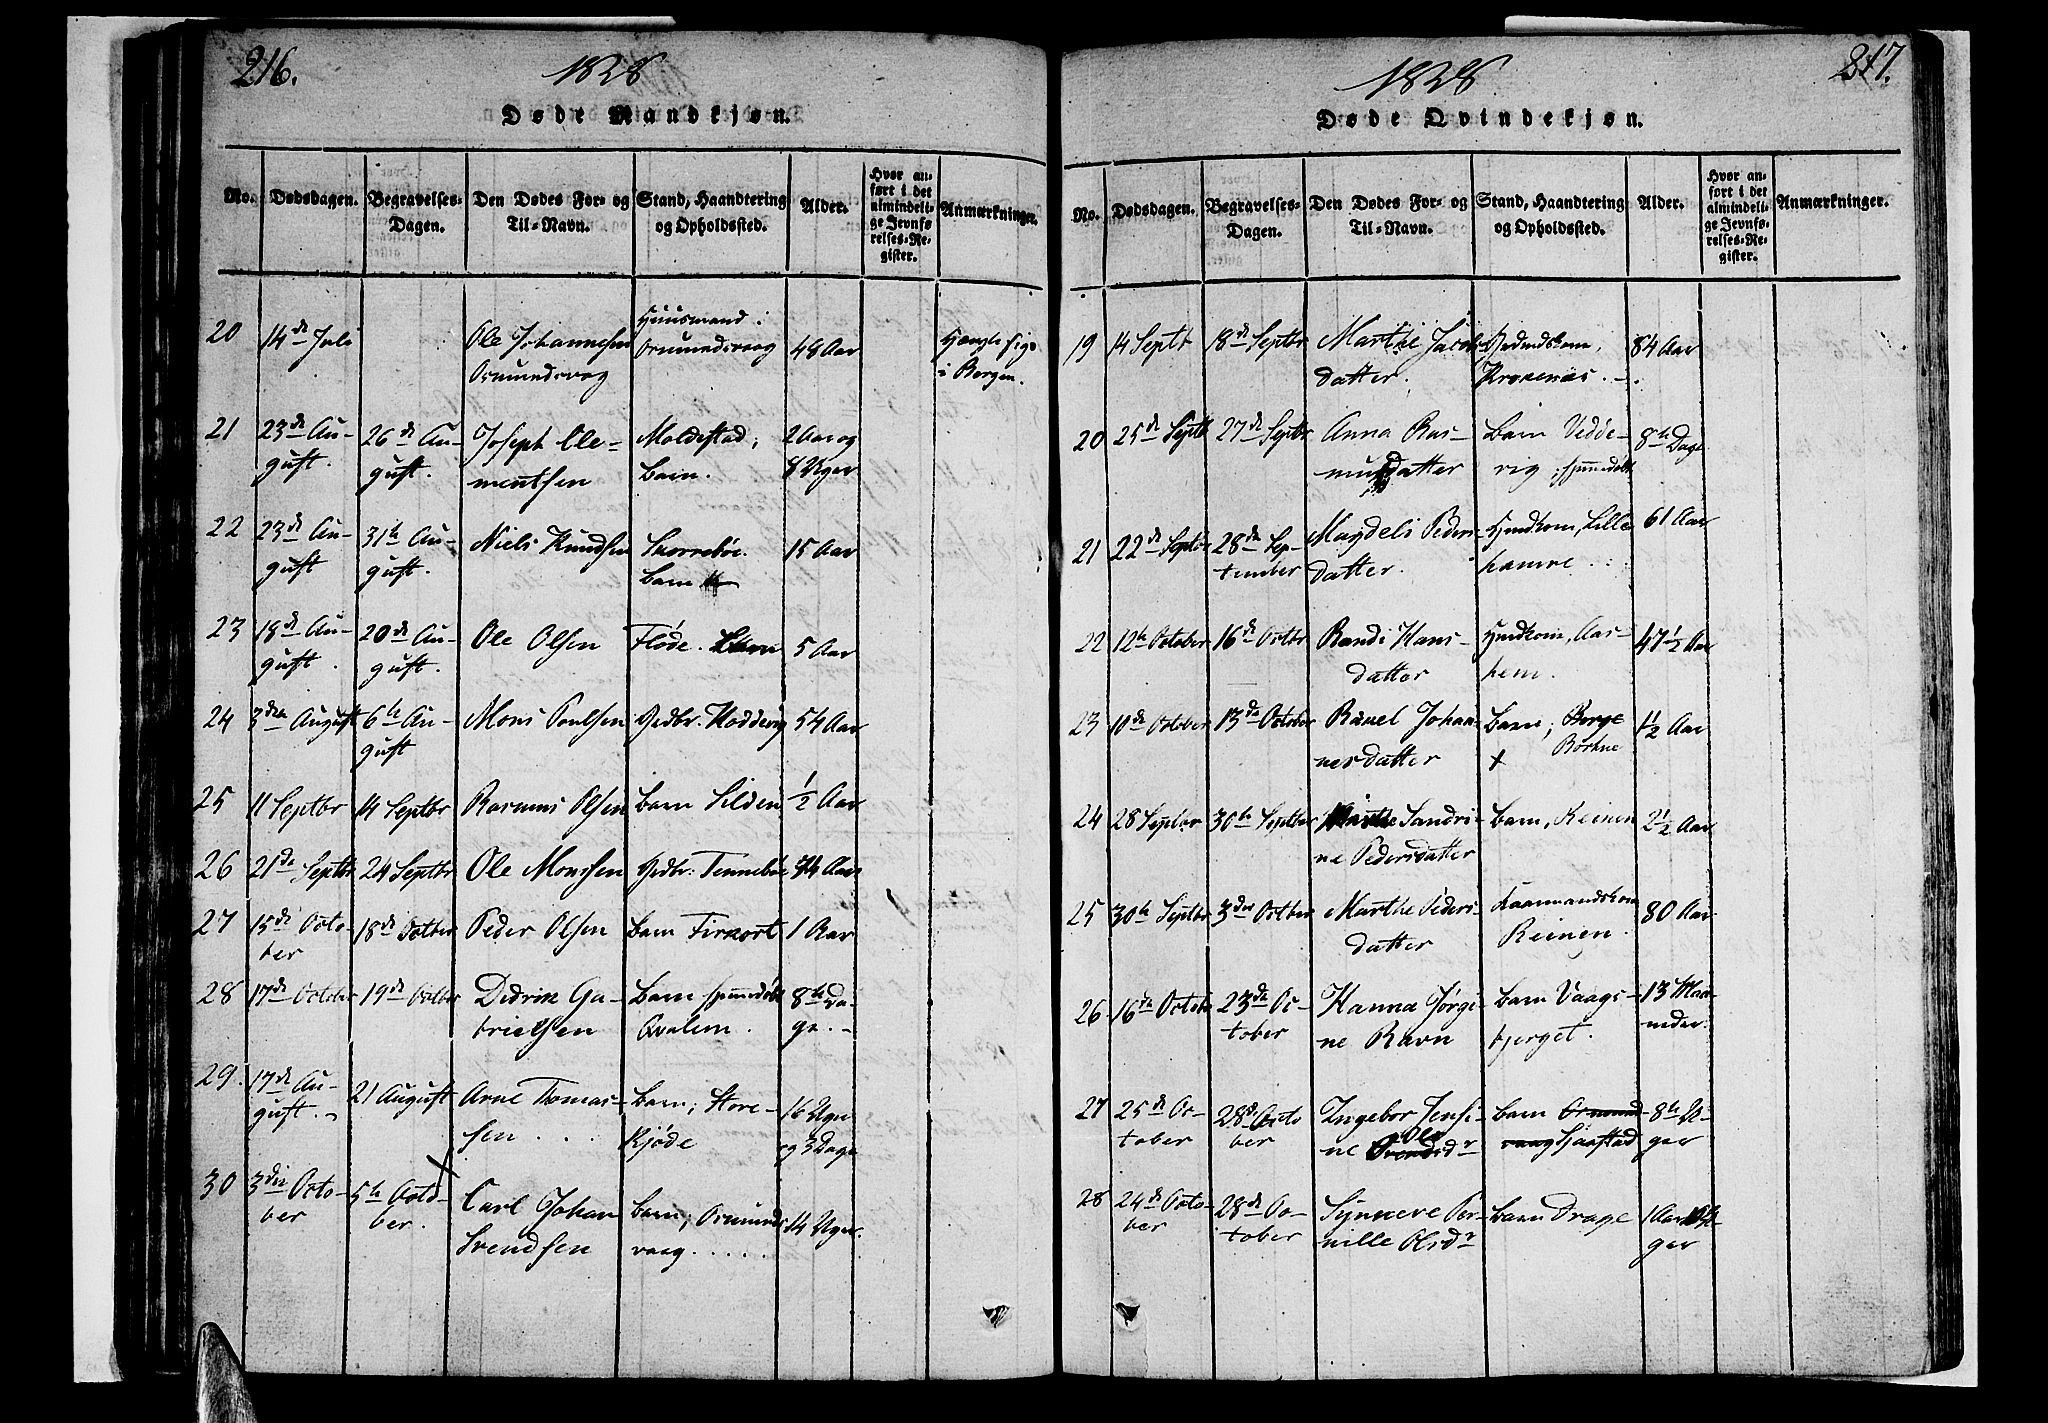 216.
1828
Døde Mandkjøn.
No.
Dødsdagen.
Begravelses-
Dagen.
Den Dødes For- og
Til-Navn.
Stand, Haandtering
og Opholdssted.
Alder.
Hvor an-
ført i det
almindeli-
ge Jevnfø-
relses-Re-
gister.
Anmærkninger.
20 14de Juli Ole Johannesen
Osmundsvog
Huusmand
Osmundsvaag
48 Aar
i Bergen.
21 23de Au-
gust.
26de Au-
gust.
Joseph Cle-
mentsen
Moldestad,
Barn.
2 Aar og
8 Uger
22 23de Au-
gust
31te Au-
gust.
Niels Knudsen
Skorrebøe.
Barn
15 Aar
23 18de Au-
gust.
20de Au-
gust.
Ole Olsen
Fløde.
5 Aar
24 3die August
6te Au-
gust
Mons Poulsen
Gedbr. Hoddevig
54 Aar
25 11 Septbr 14 Septbr Rasmus Olsen Barn Silden ½ Aar
26 21de Septbr 24 Septbr Ole Monssen Gedbr. Tennebøe 74 Aar
27 15de Octo-
ber
18de Octber Peder Olsen Barn 1 Aar
28 17de October 19de Octber Didrik Ga-
brielsen
Barn
Qvalem.
8te Da-
ge.
29. 17de Au-
gust.
21 August Arne Thomas-
sen
Barn, Store-
Kjøde
16 Uger
og 3 Dage
30 3die Octo-
ber
5te Octo-
ber.
Carl Johan
Svendsen
Barn, Osmunds-
vaag
14 Uger.
217.
1828
Døde Qvindekjøn.
No.
Dødsdagen.
Begravelses-
Dagen.
Den Dødes For- og
Til-Navn.
Stand, Haandtering
og Opholdssted.
Alder.
Hvor an-
ført i det
almindeli-
ge Jevnfø-
relses-Re-
gister.
Anmærkninger.
19 14 Septbr 18de Septbr Marthe Jacobs-
datter.
Krokenæs.
84 Aar
20 25de Septbr 27de Septbr Anna Ras-
musdatter
Barn Vedde-
vig,
8te Dage
21 22de Septbr 28de Sep-
tember
Magdeli Peders-
datter.
Lille
hamre
61 Aar
22 12te October 16de Octbr Randi Hans-
datter
Aas-
hem.
47½ Aar
23 10de October 13de October Rakel Johan-
nesdatter
Barn, Berge
1½ Aar
24 28 Septbr 30te Septber Sandri-
ne Pedersdatter
Barn, Reinen 2½ Aar
25 30te Septbr 3die Octber Marthe Peders-
datter
Reinen.
80 Aar
26 16de October 23de Oc-
tober
Hanna Jørgi-
ne Ravn
Barn Vaags-
bjerget.
13 Maa-
neder.
27 25de Oc-
tober
28de Octo
ber
Ingebor Jensi-
ne Olsdr
Barn
8te U-
ger
28 24de Octo-
ber
28de Oc-
tober
Synneve Per-
nille Olsdr
Barn Drage 1 Aar
ger